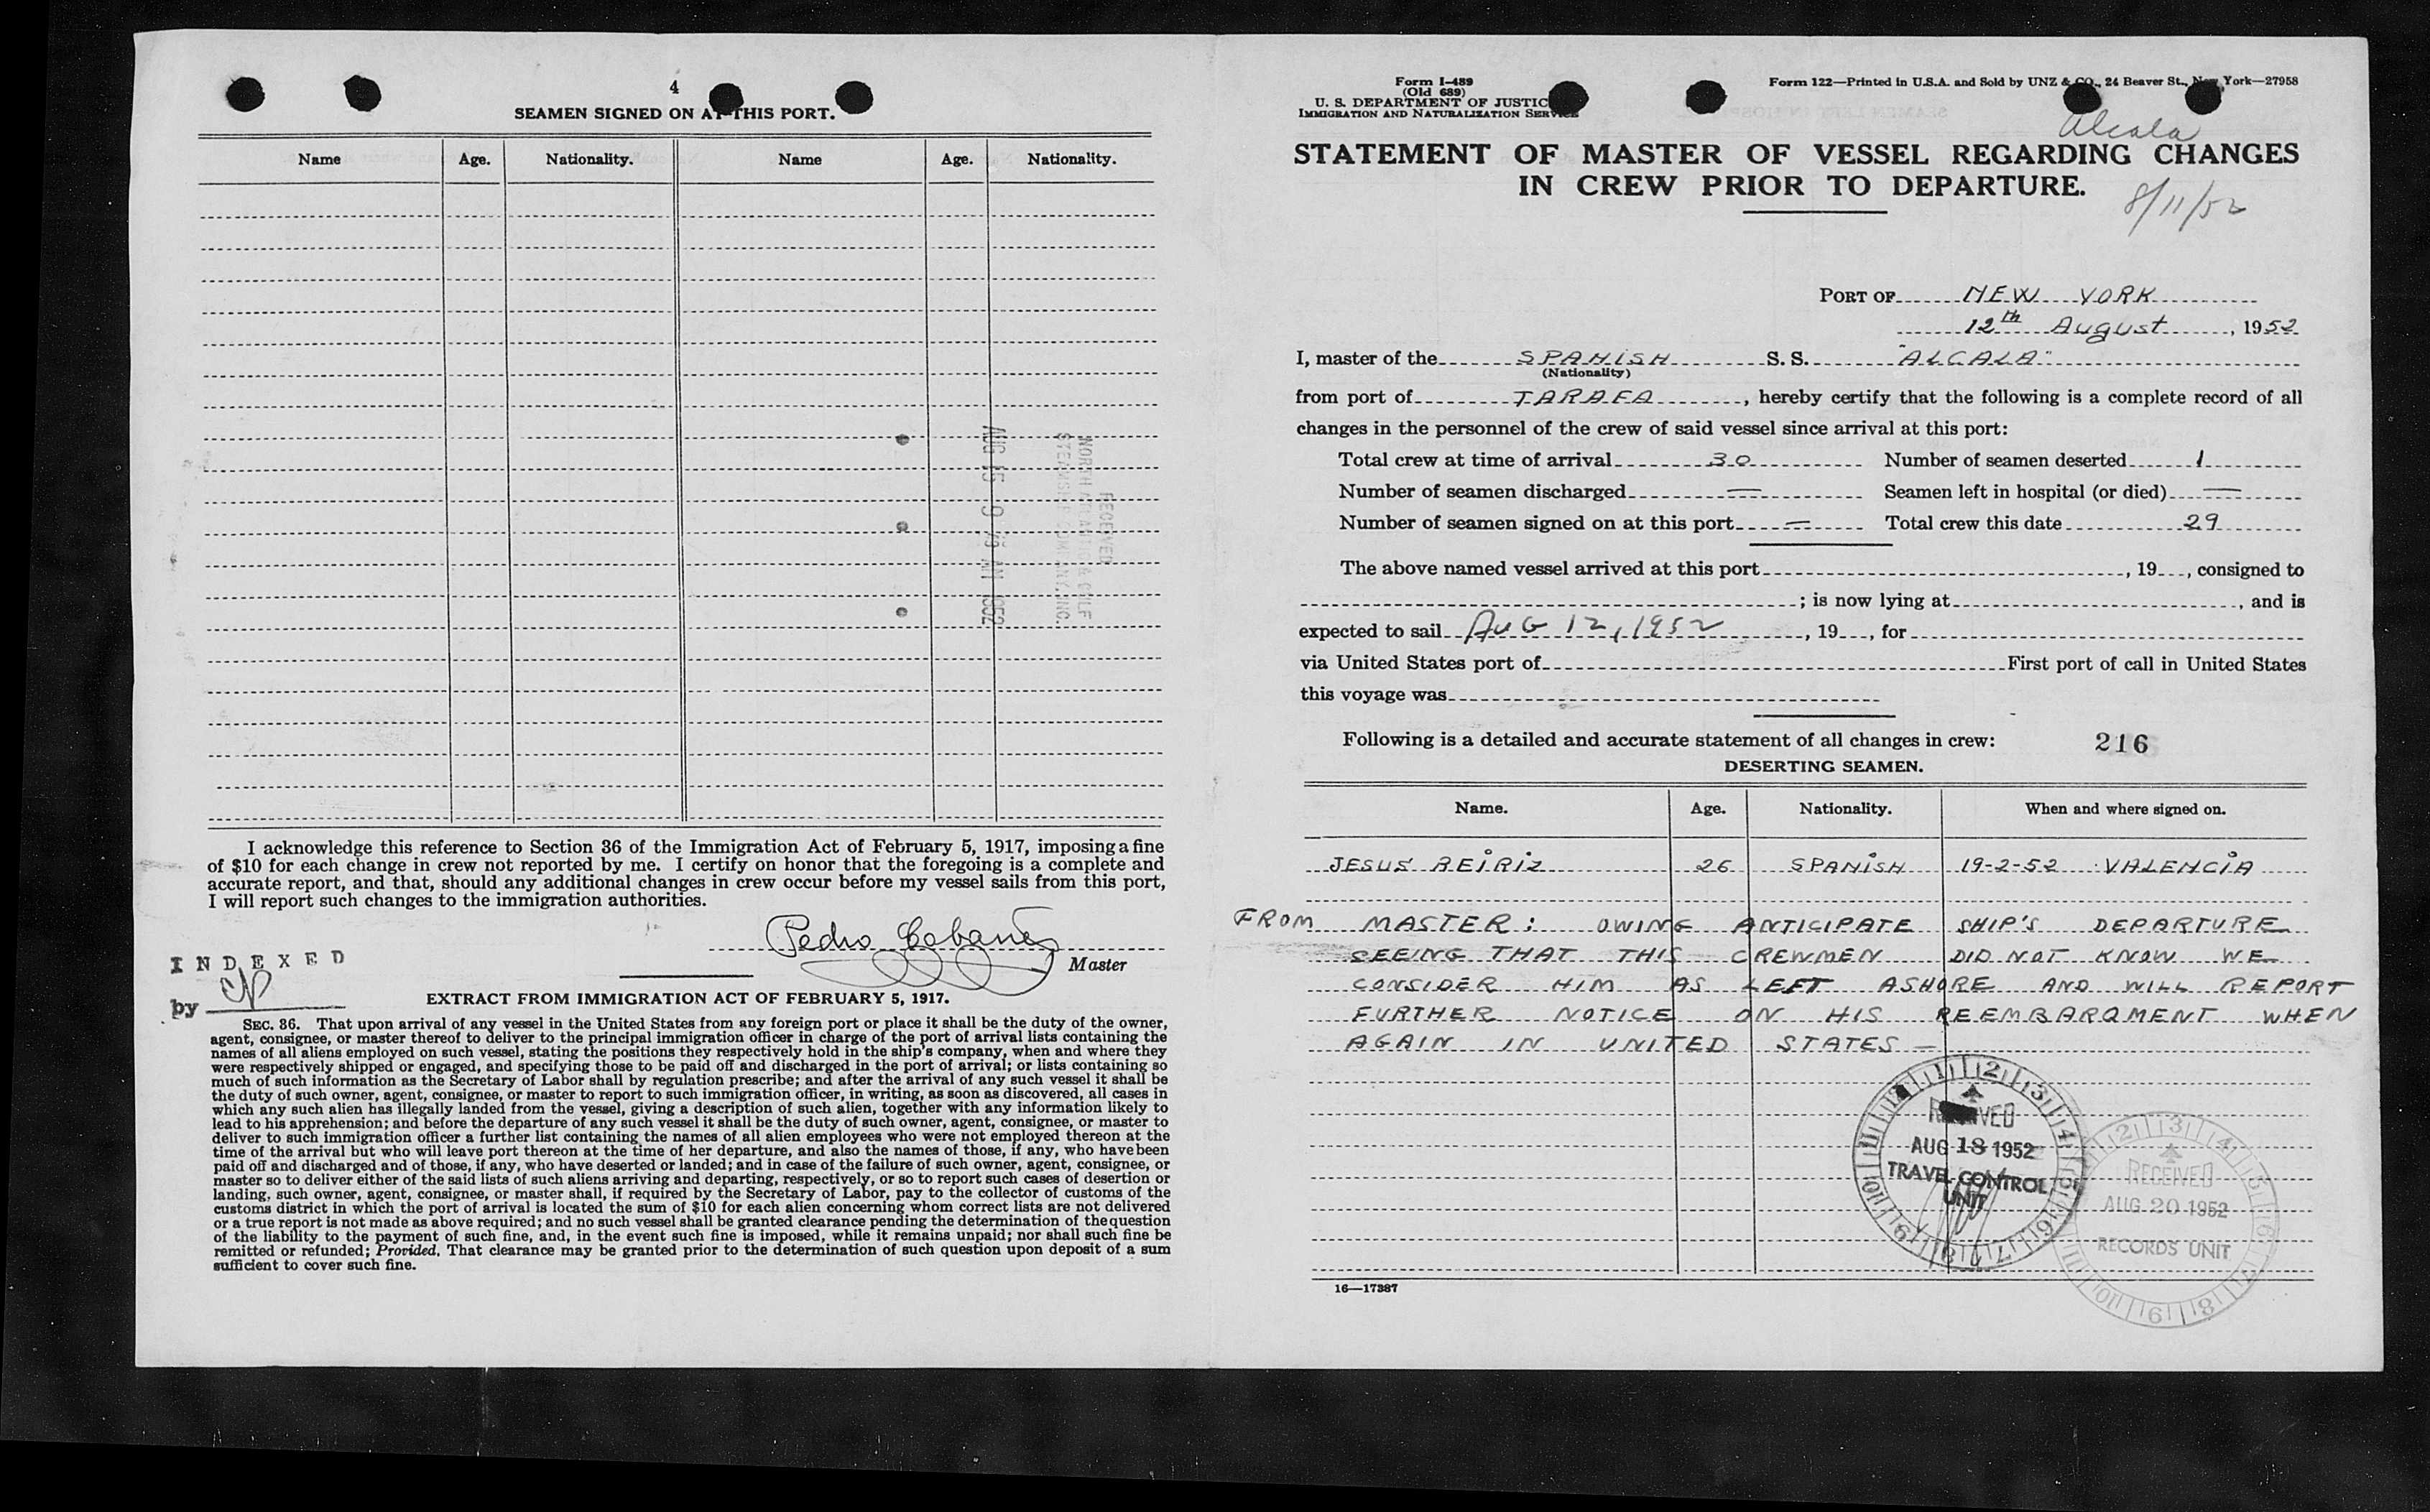 4
SEAMEN SIGNED ON AT THIS PORT.
Name Age. Nationality. Name Age. Nationality.
RECEIVED
STEAMSHIP
I acknowledge this reference to Section 36 of the Immigration Act of February 5, 1917, imposing a fine
of $10 for each change in crew not reported by me. I certify on honor that the foregoing is a complete and
accurate report, and that, should any additional changes in crew occur before my vessel sails from this port,
I will report such changes to the immigration authorities.
Pedro
Master
INDEXED
by
EXTRACT FROM IMMIGRATION ACT OF FEBRUARY 5, 1917.
SEC. 36. That upon arrival of any vessel in the United States from any foreign port or place it shall be the duty of the owner,
agent, consignee, or master thereof to deliver to the principal immigration officer in charge of the port of arrival lists containing the
names of all aliens employed on such vessel, stating the positions they respectively hold in the ship's company, when and where they
were respectively shipped or engaged, and specifying those to be paid off and discharged in the port of arrival; or lists containing so
much of such information as the Secretary of Labor shall by regulation prescribe; and after the arrival of any such vessel it shall be
the duty of such owner, agent, consignee, or master to report to such immigration officer, in writing, as soon as discovered, all cases in
which any such alien has illegally landed from the vessel, giving a description of such alien, together with any information likely to
lead to his apprehension; and before the departure of any such vessel it shall be the duty of such owner, agent, consignee, or master to
deliver to such immigration officer a further list containing the names of all alien employees who were not employed thereon at the
time of the arrival but who will leave port thereon at the time of her departure, and also the names of those, if any, who have been
paid off and discharged and of those, if any, who have deserted or landed; and in case of the failure of such owner, agent, consignee, or
master so to deliver either of the said lists of such aliens arriving and departing, respectively, or so to report such cases of desertion or
landing, such owner, agent, consignee, or master shall, if required by the Secretary of Labor, pay to the collector of customs of the
customs district in which the port of arrival is located the sum of $10 for each alien concerning whom correct lists are not delivered
or a true report is not made as above required; and no such vessel shall be granted clearance pending the determination of the question
of the liability to the payment of such fine, and, in the event such fine is imposed, while it remains unpaid; nor shall such fine be
remitted or refunded; Provided, That clearance may be granted prior to the determination of such question upon deposit of a sum
sufficient to cover such fine.
Form I-489
(Old 689)
U. S. DEPARTMENT OF JUSTICE
IMMIGRATION AND NATURALIZATION SERVICE
Form 122—Printed in U.S.A. and Sold by UNZ & CO., 24 Beaver St., New York—27958
Alcala
STATEMENT OF MASTER OF VESSEL REGARDING CHANGES
IN CREW PRIOR TO DEPARTURE.
8/11/52
PORT OF NEW YORK
12th August, 1952
I, master of the SPANISH S. S. "ALCALA"
(Nationality)
from port of TARAFA, hereby certify that the following is a complete record of all
changes in the personnel of the crew of said vessel since arrival at this port:
Total crew at time of arrival 30 Number of seamen deserted 1
Number of seamen discharged — Seamen left in hospital (or died) —
Number of seamen signed on at this port — Total crew this date 29
The above named vessel arrived at this port , 19 , consigned to
; is now lying at , and is
expected to sail AUG 12, 1952, 19 , for
via United States port of First port of call in United States
this voyage was
Following is a detailed and accurate statement of all changes in crew: 216
DESERTING SEAMEN.
Name. Age. Nationality. When and where signed on.
JESUS REIRIZ 26 SPANISH 19-2-52 VALENCIA
FROM MASTER: OWING ANTICIPATE SHIP'S DEPARTURE
SEEING THAT THIS CREWMEN DID NOT KNOW WE
CONSIDER HIM AS LEFT ASHORE AND WILL REPORT
FURTHER NOTICE ON HIS REEMBARQMENT WHEN
AGAIN IN UNITED STATES —
RECEIVED
AUG 18 1952
TRAVEL CONTROL
UNIT
RECEIVED
AUG 20 1952
RECORDS UNIT
16—17387